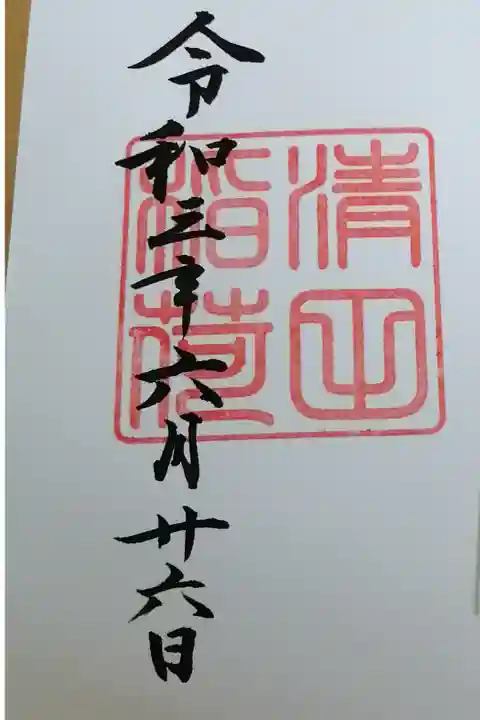 清田
稲荷
令和三年六月廿六日